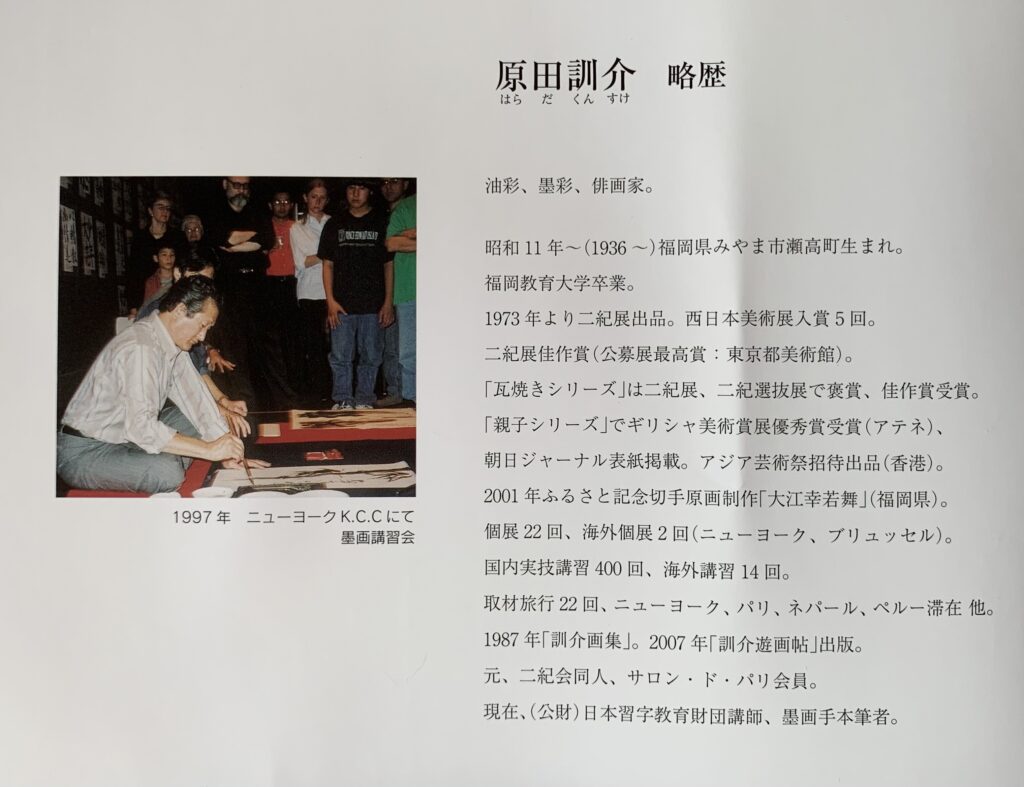 原田訓介　略歴
はら だ くん すけ
油彩、墨彩、俳画家。
昭和 11 年～(1936 ～)福岡県みやま市瀬高町生まれ。
福岡教育大学卒業。
1973 年より二紀展出品。西日本美術展入賞 5 回。
二紀展佳作賞(公募展最高賞：東京都美術館)。
「瓦焼きシリーズ」は二紀展、二紀選抜展で褒賞、佳作賞受賞。
「親子シリーズ」でギリシャ美術賞展優秀賞受賞(アテネ)、
朝日ジャーナル表紙掲載。アジア芸術祭招待出品(香港)。
2001 年ふるさと記念切手原画制作「大江幸若舞」(福岡県)。
個展 22 回、海外個展 2 回(ニューヨーク、ブリュッセル)。
国内実技講習 400 回、海外講習 14 回。
取材旅行 22 回、ニューヨーク、パリ、ネパール、ペルー滞在 他。
1987 年「訓介画集」。2007 年「訓介遊画帖」出版。
元、二紀会同人、サロン・ド・パリ会員。
現在、(公財)日本習字教育財団講師、墨画手本筆者。
1997 年　ニューヨーク K.C.C にて
墨画講習会